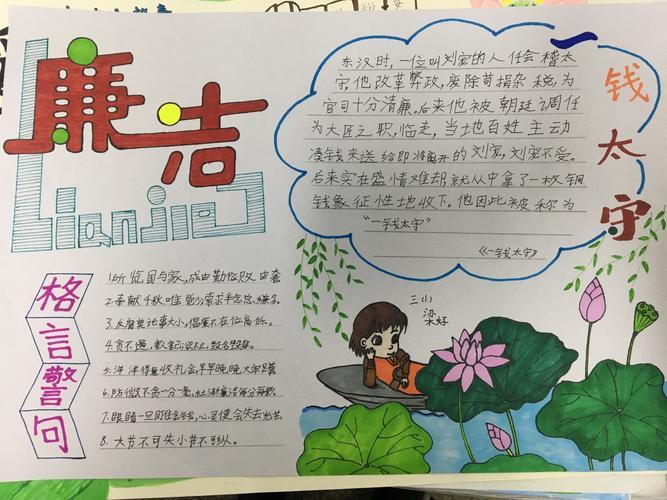 廉洁
Lianjie
一钱太守
东汉时,一位叫刘宠的人任会稽太
守,他改革弊政,废除苛捐杂税,为
官日十分清廉。后来他被朝廷调任
为大匠之职,临走,当地百姓主动
凑钱来送给即将离开的刘宠,刘宠不受。
后来实在盛情难却就从中拿了一枚铜
钱象征性地收下。他因此被称为
“一钱太守”
《一钱太守》
格言警句
1.历览国与家,成由勤俭败由奢
2.奉献千秋唯
3.反腐莫论事大小,倡廉不在位高低。
4.贪不
5.洋洋得意收礼会,早早晚晚
6.防微不舍一分一毫,
7.眼睛一旦盯住金钱,心灵便会失去光芒。
8.大节不可失小节不可纵。
三(4)
梁好